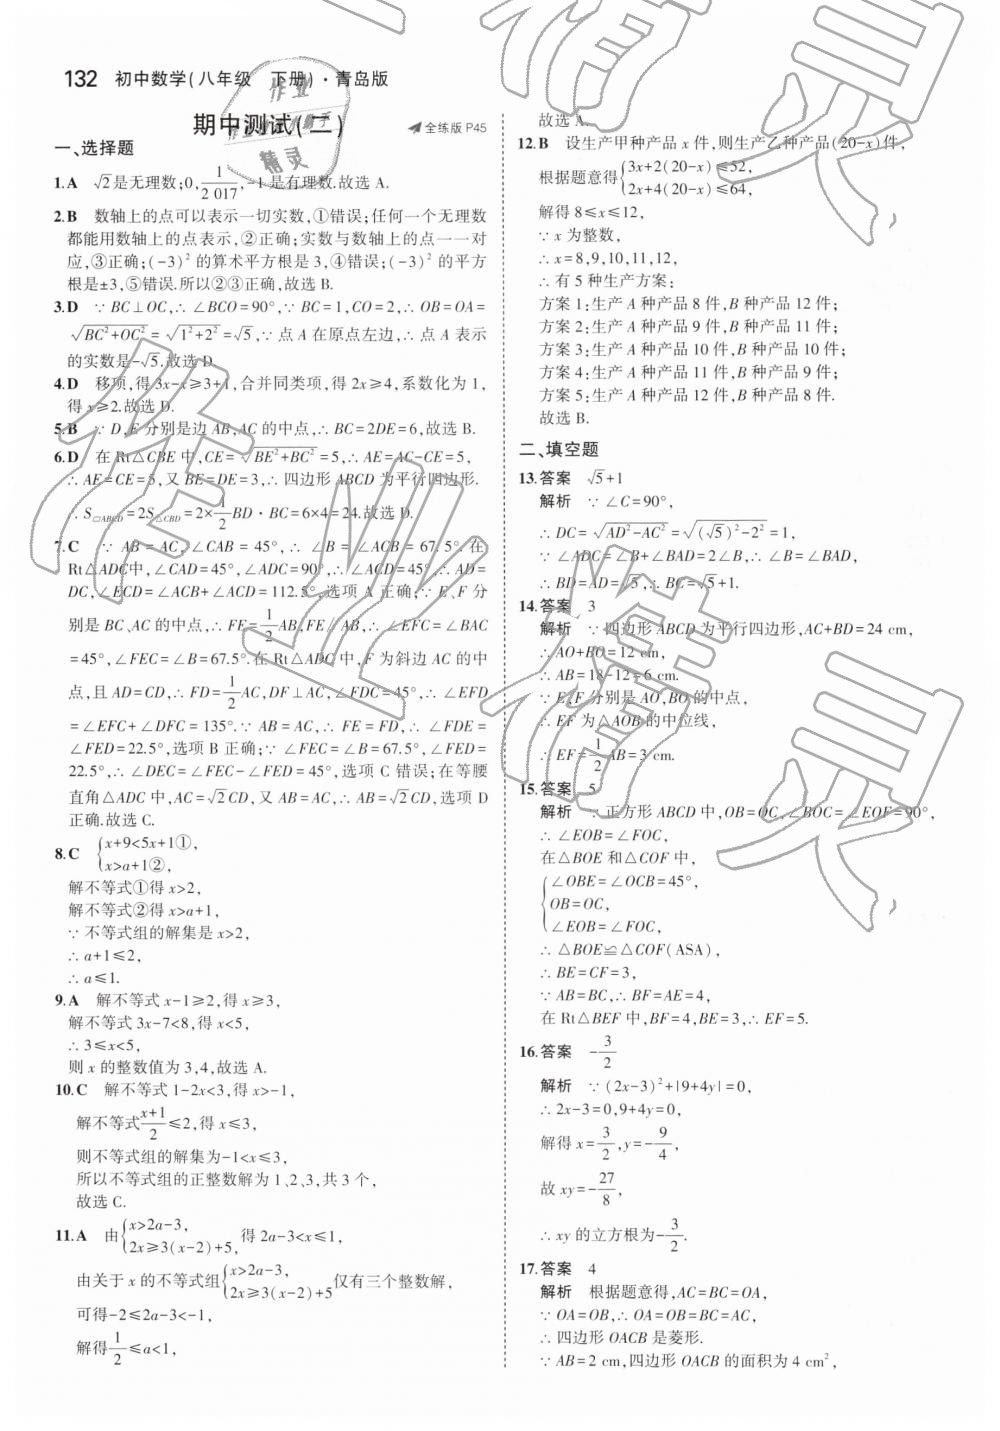 132 初中数学(八年级 下册)·青岛版
期中测试(二) 全练版 P45
一、选择题
1.A √2是无理数;0,1/2 017,-1是有理数.故选A.
2.B 数轴上的点可以表示一切实数,①错误;任何一个无理数
都能用数轴上的点表示,②正确;实数与数轴上的点一一对
应,③正确;(-3)²的算术平方根是3,④错误;(-3)²的平方
根是±3,⑤错误.所以②③正确,故选B.
3.D ∵BC⊥OC,∴∠BCO=90°,∵BC=1,CO=2,∴OB=OA=
√(BC²+OC²)=√(1²+2²)=√5,∵点A在原点左边,∴点A表示
的实数是-√5.故选D.
4.D 移项,得3x-x≥3+1,合并同类项,得2x≥4,系数化为1,
得x≥2.故选D.
5.B ∵D,E分别是边AB,AC的中点,∴BC=2DE=6,故选B.
6.D 在Rt△CBE中,CE=√(BE²+BC²)=5,∴AE=AC-CE=5,
∴AE=CE=5,又BE=DE=3,∴四边形ABCD为平行四边形.
∴S▱ABCD=2S△CBD=2×1/2BD·BC=6×4=24.故选D.
7.C ∵AB=AC,∠CAB=45°,∴∠B=∠ACB=67.5°.在
Rt△ADC中,∠CAD=45°,∠ADC=90°,∴∠ACD=45°,∴AD=
DC,∠ECD=∠ACB+∠ACD=112.5°,选项A正确;∵E、F分
别是BC、AC的中点,∴FE=1/2AB,FE∥AB,∴∠EFC=∠BAC
=45°,∠FEC=∠B=67.5°.在Rt△ADC中,F为斜边AC的中
点,且AD=CD,∴FD=1/2AC,DF⊥AC,∠FDC=45°,∴∠EFD
=∠EFC+∠DFC=135°.∵AB=AC,∴FE=FD,∴∠FDE=
∠FED=22.5°,选项B正确;∵∠FEC=∠B=67.5°,∠FED=
22.5°,∴∠DEC=∠FEC-∠FED=45°,选项C错误;在等腰
直角△ADC中,AC=√2CD,又AB=AC,∴AB=√2CD,选项D
正确.故选C.
8.C {x+9<5x+1①,
x>a+1②,
解不等式①得x>2,
解不等式②得x>a+1,
∵不等式组的解集是x>2,
∴a+1≤2,
∴a≤1.
9.A 解不等式x-1≥2,得x≥3,
解不等式3x-7<8,得x<5,
∴3≤x<5,
则x的整数值为3,4,故选A.
10.C 解不等式1-2x<3,得x>-1,
解不等式(x+1)/2≤2,得x≤3,
则不等式组的解集为-1<x≤3,
所以不等式组的正整数解为1、2、3,共3个,
故选C.
11.A 由{x>2a-3,
2x≥3(x-2)+5,得2a-3<x≤1,
由关于x的不等式组{x>2a-3,
2x≥3(x-2)+5仅有三个整数解,
可得-2≤2a-3<-1,
解得1/2≤a<1,
故选A.
12.B 设生产甲种产品x件,则生产乙种产品(20-x)件,
根据题意得{3x+2(20-x)≤52,
2x+4(20-x)≤64,
解得8≤x≤12,
∵x为整数,
∴x=8,9,10,11,12,
∴有5种生产方案:
方案1:生产A种产品8件,B种产品12件;
方案2:生产A种产品9件,B种产品11件;
方案3:生产A种产品10件,B种产品10件;
方案4:生产A种产品11件,B种产品9件;
方案5:生产A种产品12件,B种产品8件.
故选B.
二、填空题
13.答案 √5+1
解析 ∵∠C=90°,
∴DC=√(AD²-AC²)=√((√5)²-2²)=1,
∵∠ADC=∠B+∠BAD=2∠B,∴∠B=∠BAD,
∴BD=AD=√5,∴BC=√5+1.
14.答案 3
解析 ∵四边形ABCD为平行四边形,AC+BD=24 cm,
∴AO+BO=12 cm,
∴AB=18-12=6 cm.
∵E,F分别是AO,BO的中点,
∴EF为△AOB的中位线,
∴EF=1/2AB=3 cm.
15.答案 5
解析 ∵正方形ABCD中,OB=OC,∠BOC=∠EOF=90°,
∴∠EOB=∠FOC,
在△BOE和△COF中,
{∠OBE=∠OCB=45°,
OB=OC,
∠EOB=∠FOC,
∴△BOE≌△COF(ASA)
∴BE=CF=3,
∵AB=BC,∴BF=AE=4,
在Rt△BEF中,BF=4,BE=3,∴EF=5.
16.答案 -3/2
解析 ∵(2x-3)²+|9+4y|=0,
∴2x-3=0,9+4y=0,
解得x=3/2,y=-9/4,
故xy=-27/8,
∴xy的立方根为-3/2.
17.答案 4
解析 根据题意得,AC=BC=OA,
∵OA=OB,∴OA=OB=BC=AC,
∴四边形OACB是菱形.
∵AB=2 cm,四边形OACB的面积为4 cm²,
作业精灵